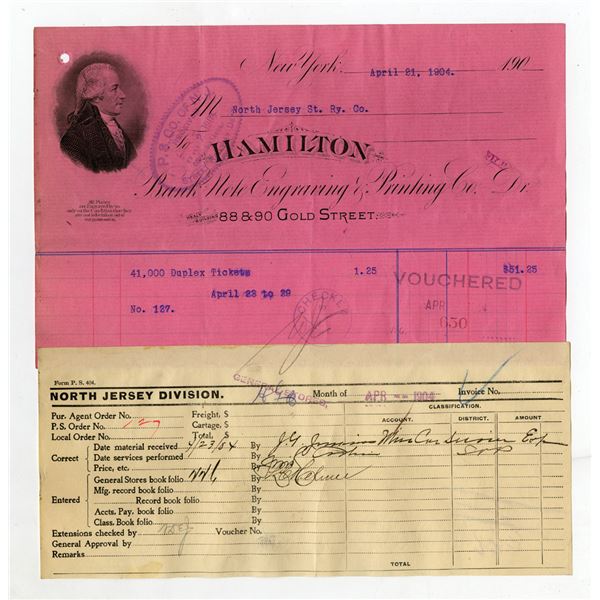 New York, April 21, 1904. 190
M North Jersey St. Ry. Co.
To HAMILTON
Bank Note Engraving & Printing Co. Dr
88 & 90 GOLD STREET.
All Plates
are Engraved by us
only on the Condition that they
are not taken out of
our possession.
P. S. CO. OF N. J.
41,000 Duplex Tickets 1.25 $51.25
April 23 to 29
No. 127.
CHECKED
VOUCHERED
APR
650
Form P. S. 404.
NORTH JERSEY DIVISION.
GENERAL STORES.
Month of APR 1904 Invoice No.
CLASSIFICATION.
ACCOUNT. DISTRICT. AMOUNT
Pur. Agent Order No. Freight, $
P. S. Order No. 127 Cartage, $
Local Order No. Total, $
Correct
Date material received 4/23/04 By
Date services performed By
Price, etc. By
Entered
General Stores book folio 446 By
Mfg. record book folio By
Record book folio By
Accts. Pay. book folio By
Class. Book folio By
Extensions checked by Voucher No.
General Approval by
Remarks
TOTAL